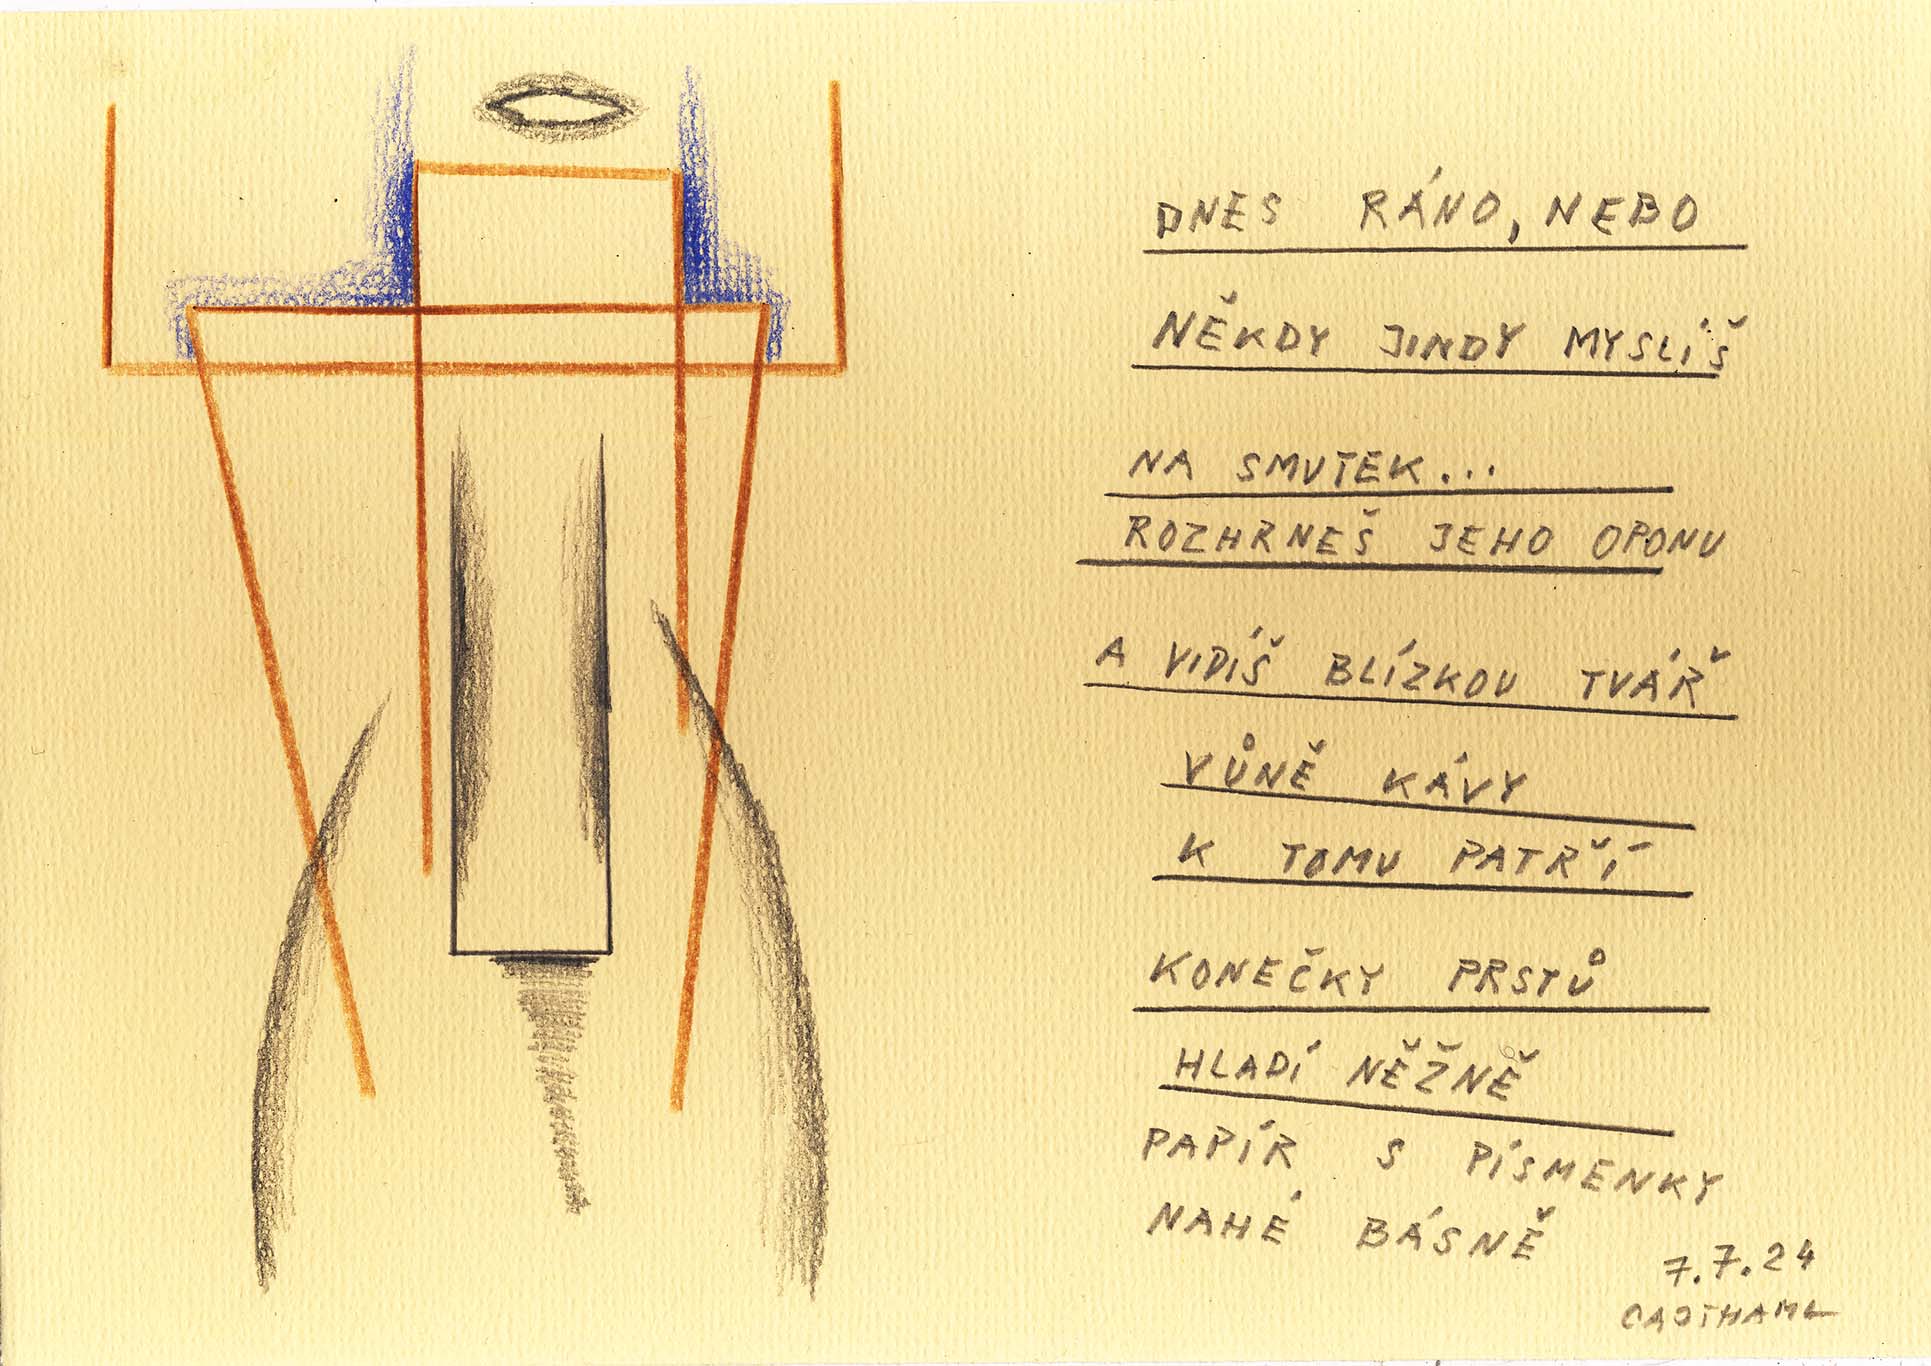 DNES RÁNO, NEBO
NĚKDY JINDY MYSLÍŠ
NA SMUTEK...
ROZHRNEŠ JEHO OPONU
A VIDÍŠ BLÍZKOU TVÁŘ
VŮNĚ KÁVY
K TOMU PATŘÍ
KONEČKY PRSTŮ
HLADÍ NĚŽNĚ
PAPÍR S PÍSMENKY
NAHÉ BÁSNĚ
7.7.24